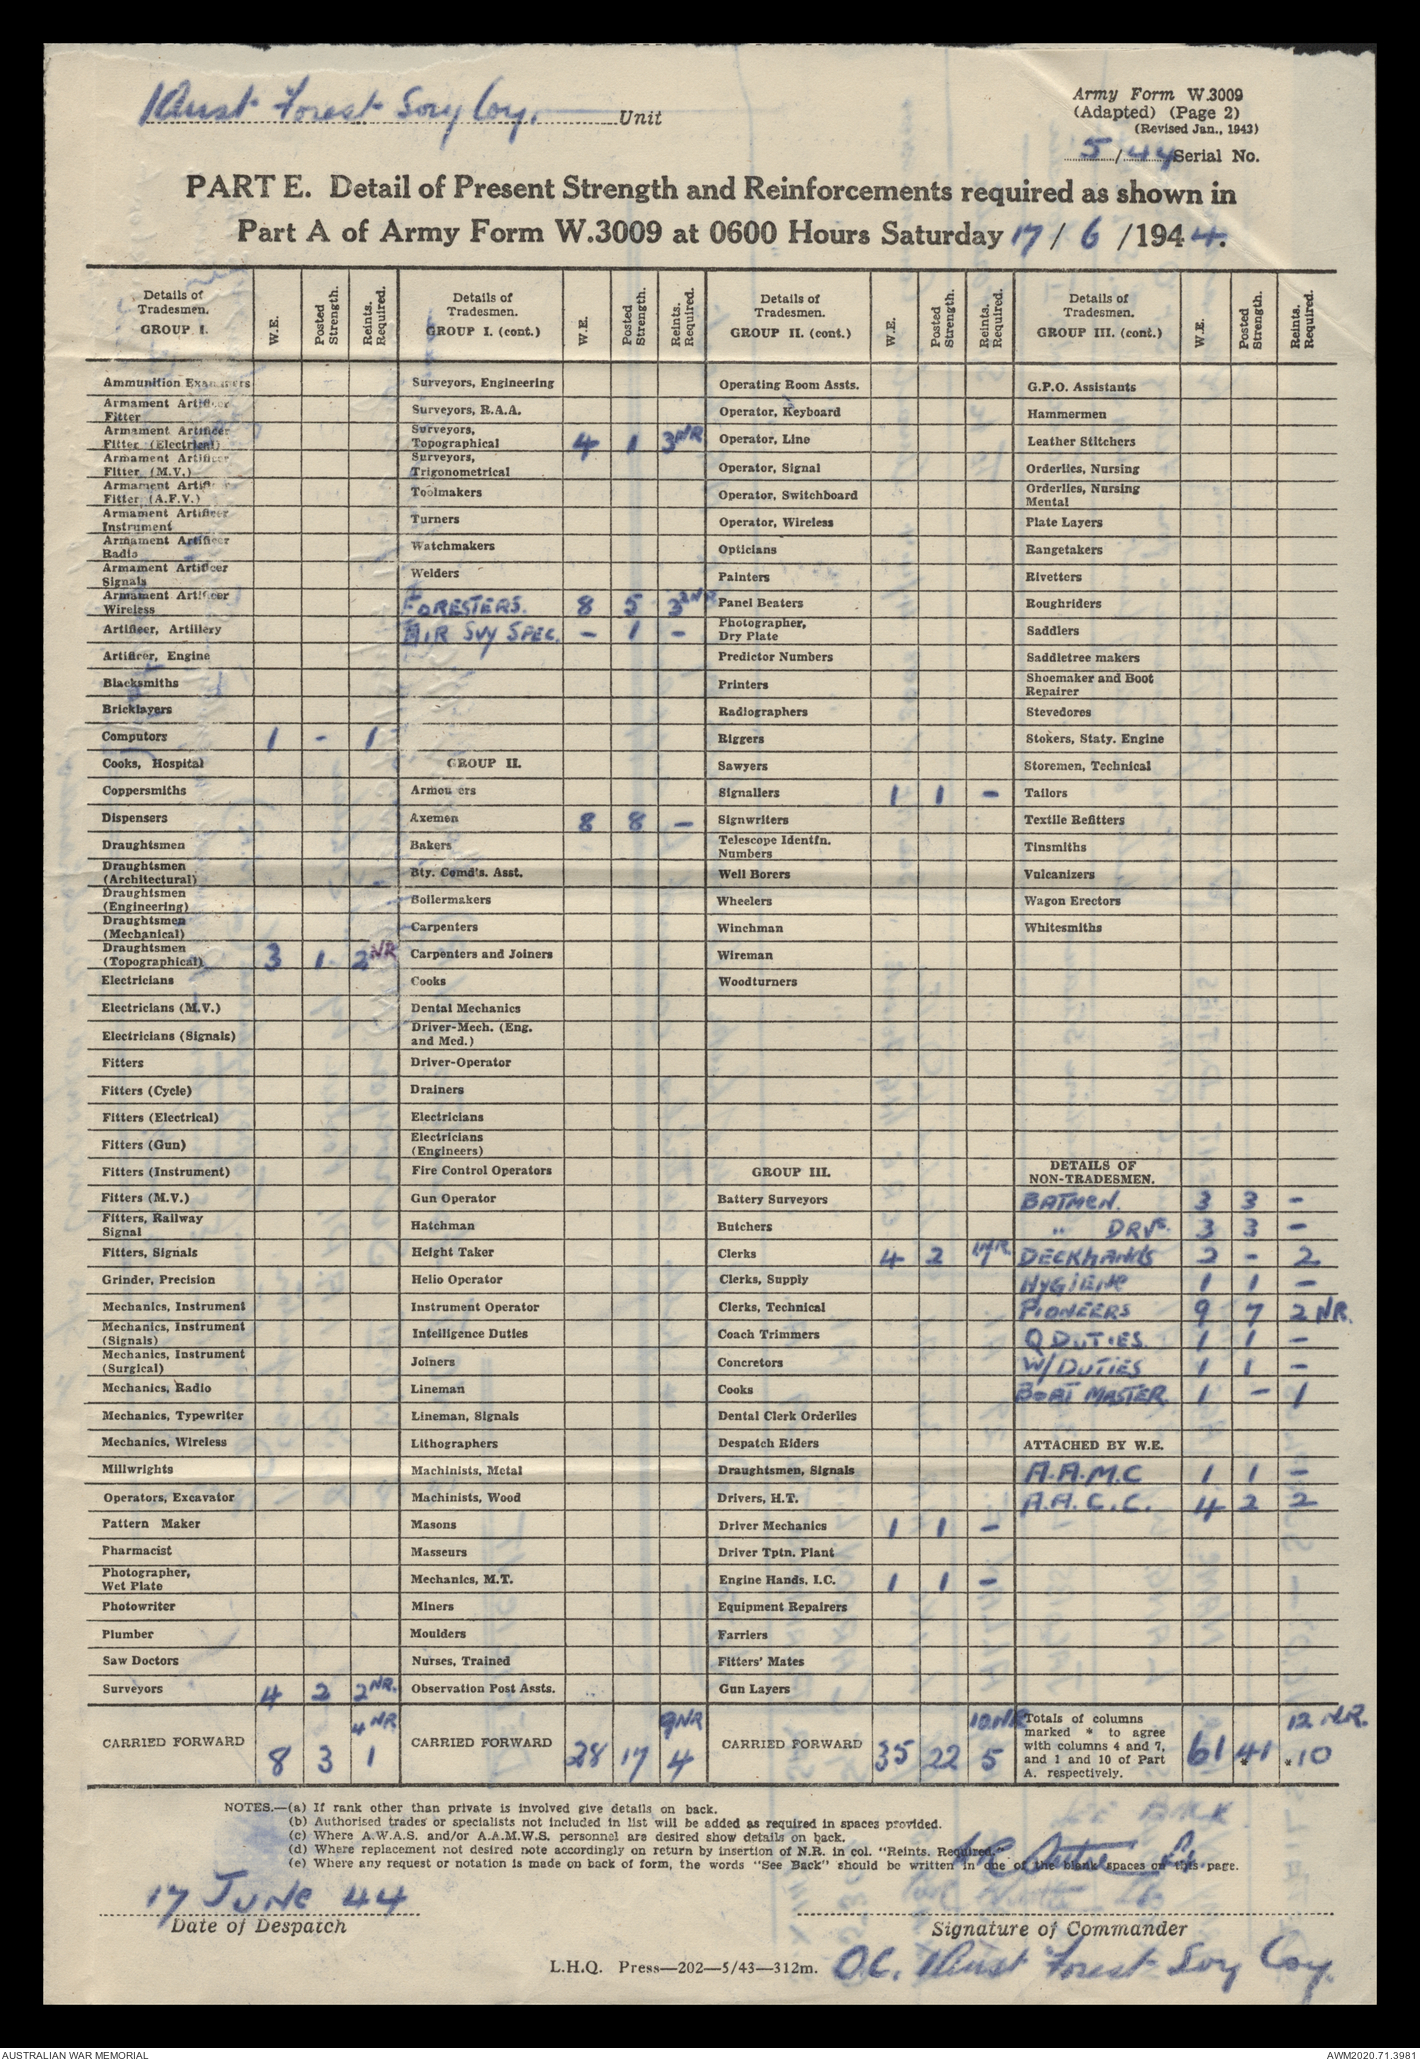 1 Aust Forest Svy Coy. Unit
Army Form W.3009
(Adapted) (Page 2)
(Revised Jan., 1943)
5/44 Serial No.
PART E. Detail of Present Strength and Reinforcements required as shown in
Part A of Army Form W.3009 at 0600 Hours Saturday 17/ 6 /1944.
Details of Tradesmen. GROUP I. W.E. Posted Strength. Reints. Required.
Ammunition Examiners
Armament Artificer Fitter
Armament Artificer Fitter (Electrical)
Armament Artificer Fitter (M.V.)
Armament Artificer Fitter (A.F.V.)
Armament Artificer Instrument
Armament Artificer Radio
Armament Artificer Signals
Armament Artificer Wireless
Artificer, Artillery
Artificer, Engine
Blacksmiths
Bricklayers
Computors 1 - 1
Cooks, Hospital
Coppersmiths
Dispensers
Draughtsmen
Draughtsmen (Architectural)
Draughtsmen (Engineering)
Draughtsmen (Mechanical)
Draughtsmen (Topographical) 3 1 2 NR
Electricians
Electricians (M.V.)
Electricians (Signals)
Fitters
Fitters (Cycle)
Fitters (Electrical)
Fitters (Gun)
Fitters (Instrument)
Fitters (M.V.)
Fitters, Railway Signal
Fitters, Signals
Grinder, Precision
Mechanics, Instrument
Mechanics, Instrument (Signals)
Mechanics, Instrument (Surgical)
Mechanics, Radio
Mechanics, Typewriter
Mechanics, Wireless
Millwrights
Operators, Excavator
Pattern Maker
Pharmacist
Photographer, Wet Plate
Photowriter
Plumber
Saw Doctors
Surveyors 4 2 2 NR.
4 NR
CARRIED FORWARD 8 3 1
Details of Tradesmen. GROUP I. (cont.) W.E. Posted Strength. Reints. Required.
Surveyors, Engineering
Surveyors, R.A.A.
Surveyors, Topographical 4 1 3 NR
Surveyors, Trigonometrical
Toolmakers
Turners
Watchmakers
Welders
FORESTERS. 8 5 3
AIR SVY SPEC. - 1 -
GROUP II.
Armourers
Axemen 8 8 -
Bakers
Bty. Comd's. Asst.
Boilermakers
Carpenters
Carpenters and Joiners
Cooks
Dental Mechanics
Driver-Mech. (Eng. and Med.)
Driver-Operator
Drainers
Electricians
Electricians (Engineers)
Fire Control Operators
Gun Operator
Hatchman
Height Taker
Helio Operator
Instrument Operator
Intelligence Duties
Joiners
Lineman
Lineman, Signals
Lithographers
Machinists, Metal
Machinists, Wood
Masons
Masseurs
Mechanics, M.T.
Miners
Moulders
Nurses, Trained
Observation Post Assts.
9 NR
CARRIED FORWARD 28 17 4
Details of Tradesmen. GROUP II. (cont.) W.E. Posted Strength. Reints. Required.
Operating Room Assts.
Operator, Keyboard
Operator, Line
Operator, Signal
Operator, Switchboard
Operator, Wireless
Opticians
Painters
Panel Beaters
Photographer, Dry Plate
Predictor Numbers
Printers
Radiographers
Riggers
Sawyers
Signallers 1 1 -
Signwriters
Telescope Identfn. Numbers
Well Borers
Wheelers
Winchman
Wireman
Woodturners
GROUP III.
Battery Surveyors
Butchers
Clerks 4 2
Clerks, Supply
Clerks, Technical
Coach Trimmers
Concretors
Cooks
Dental Clerk Orderlies
Despatch Riders
Draughtsmen, Signals
Drivers, H.T.
Driver Mechanics 1 1 -
Driver Tptn. Plant
Engine Hands, I.C. 1 1 -
Equipment Repairers
Farriers
Fitters' Mates
Gun Layers
10 NR
CARRIED FORWARD 35 22 5
Details of Tradesmen. GROUP III. (cont.) W.E. Posted Strength. Reints. Required.
G.P.O. Assistants
Hammermen
Leather Stitchers
Orderlies, Nursing
Orderlies, Nursing Mental
Plate Layers
Rangetakers
Rivetters
Roughriders
Saddlers
Saddletree makers
Shoemaker and Boot Repairer
Stevedores
Stokers, Staty. Engine
Storemen, Technical
Tailors
Textile Refitters
Tinsmiths
Vulcanizers
Wagon Erectors
Whitesmiths
DETAILS OF NON-TRADESMEN.
BATMEN. 3 3 -
" DRVS. 3 3 -
DECKHANDS 2 - 2
HYGIENE 1 1 -
PIONEERS 9 7 2 NR.
Q DUTIES. 1 1 -
W/DUTIES 1 1 -
BOAT MASTER. 1 - 1
ATTACHED BY W.E.
A.A.M.C 1 1 -
A.A.C.C. 4 2 2
12 N.R.
Totals of columns marked * to agree with columns 4 and 7, and 1 and 10 of Part A. respectively. 61 *41 *10
NOTES.—(a) If rank other than private is involved give details on back.
(b) Authorised trades or specialists not included in list will be added as required in spaces provided.
(c) Where A.W.A.S. and/or A.A.M.W.S. personnel are desired show details on back.
(d) Where replacement not desired note accordingly on return by insertion of N.R. in col. "Reints. Required."
(e) Where any request or notation is made on back of form, the words "See Back" should be written in one of the blank spaces on this page.
17 JUNE 44
Date of Despatch
Signature of Commander
L.H.Q. Press—202—5/43—312m.
O.C. 1 Aust Forest Svy Coy.
AUSTRALIAN WAR MEMORIAL
AWM2020.71.3981